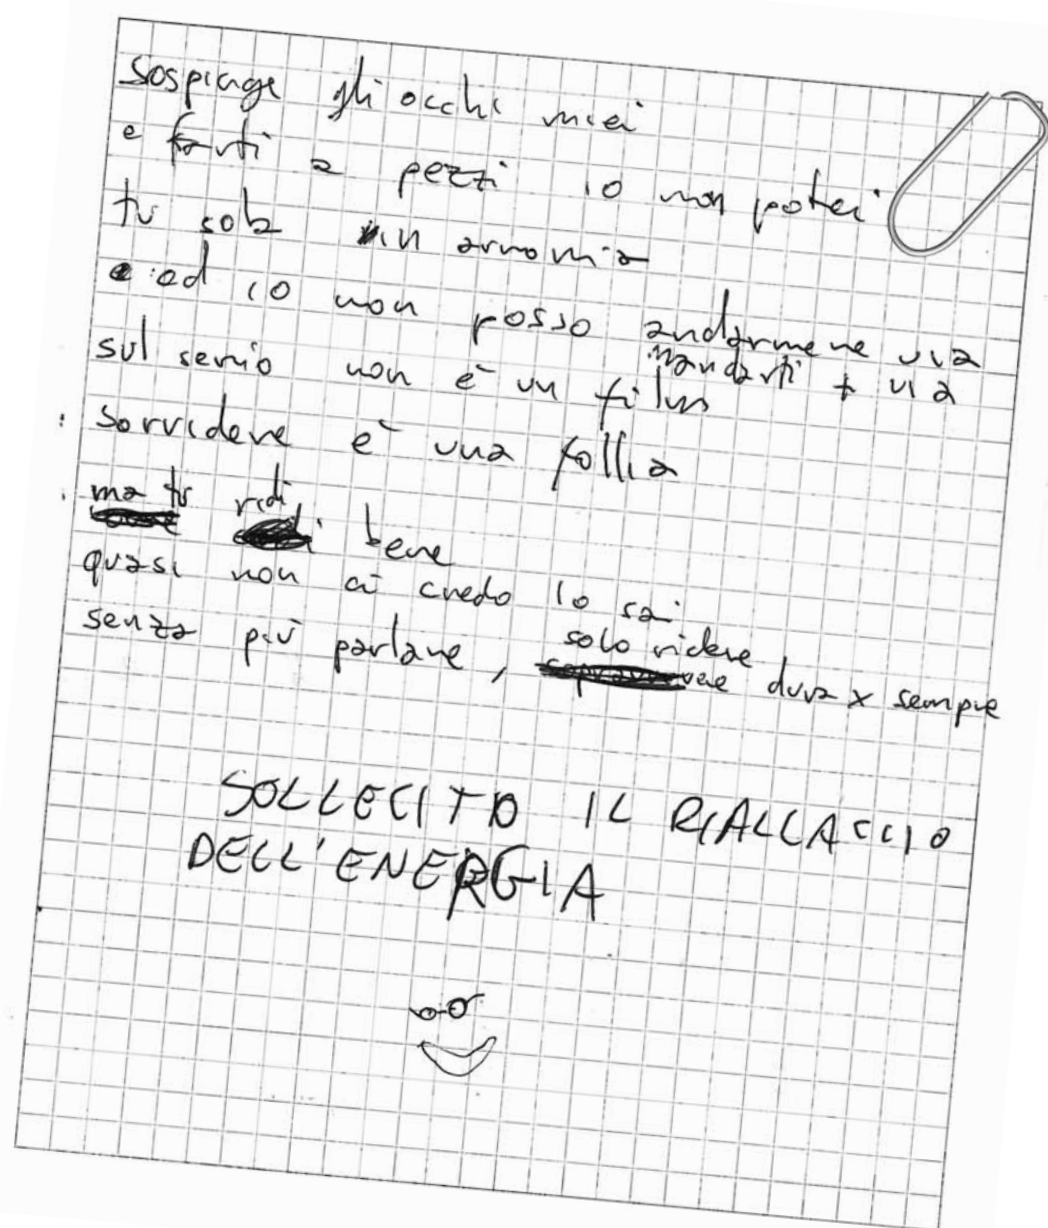 sospinge gli occhi miei
e farti a pezzi io non potei
tu sola in armonia
ed io non posso andarmene via
mandarti + via
sul serio non è un film
sorridere è una follia
ma tu ridi bene
quasi non ci credo lo sai
senza più parlare, solo ridere dura x sempre
SOLLECITO IL RIALLACCIO
DELL'ENERGIA